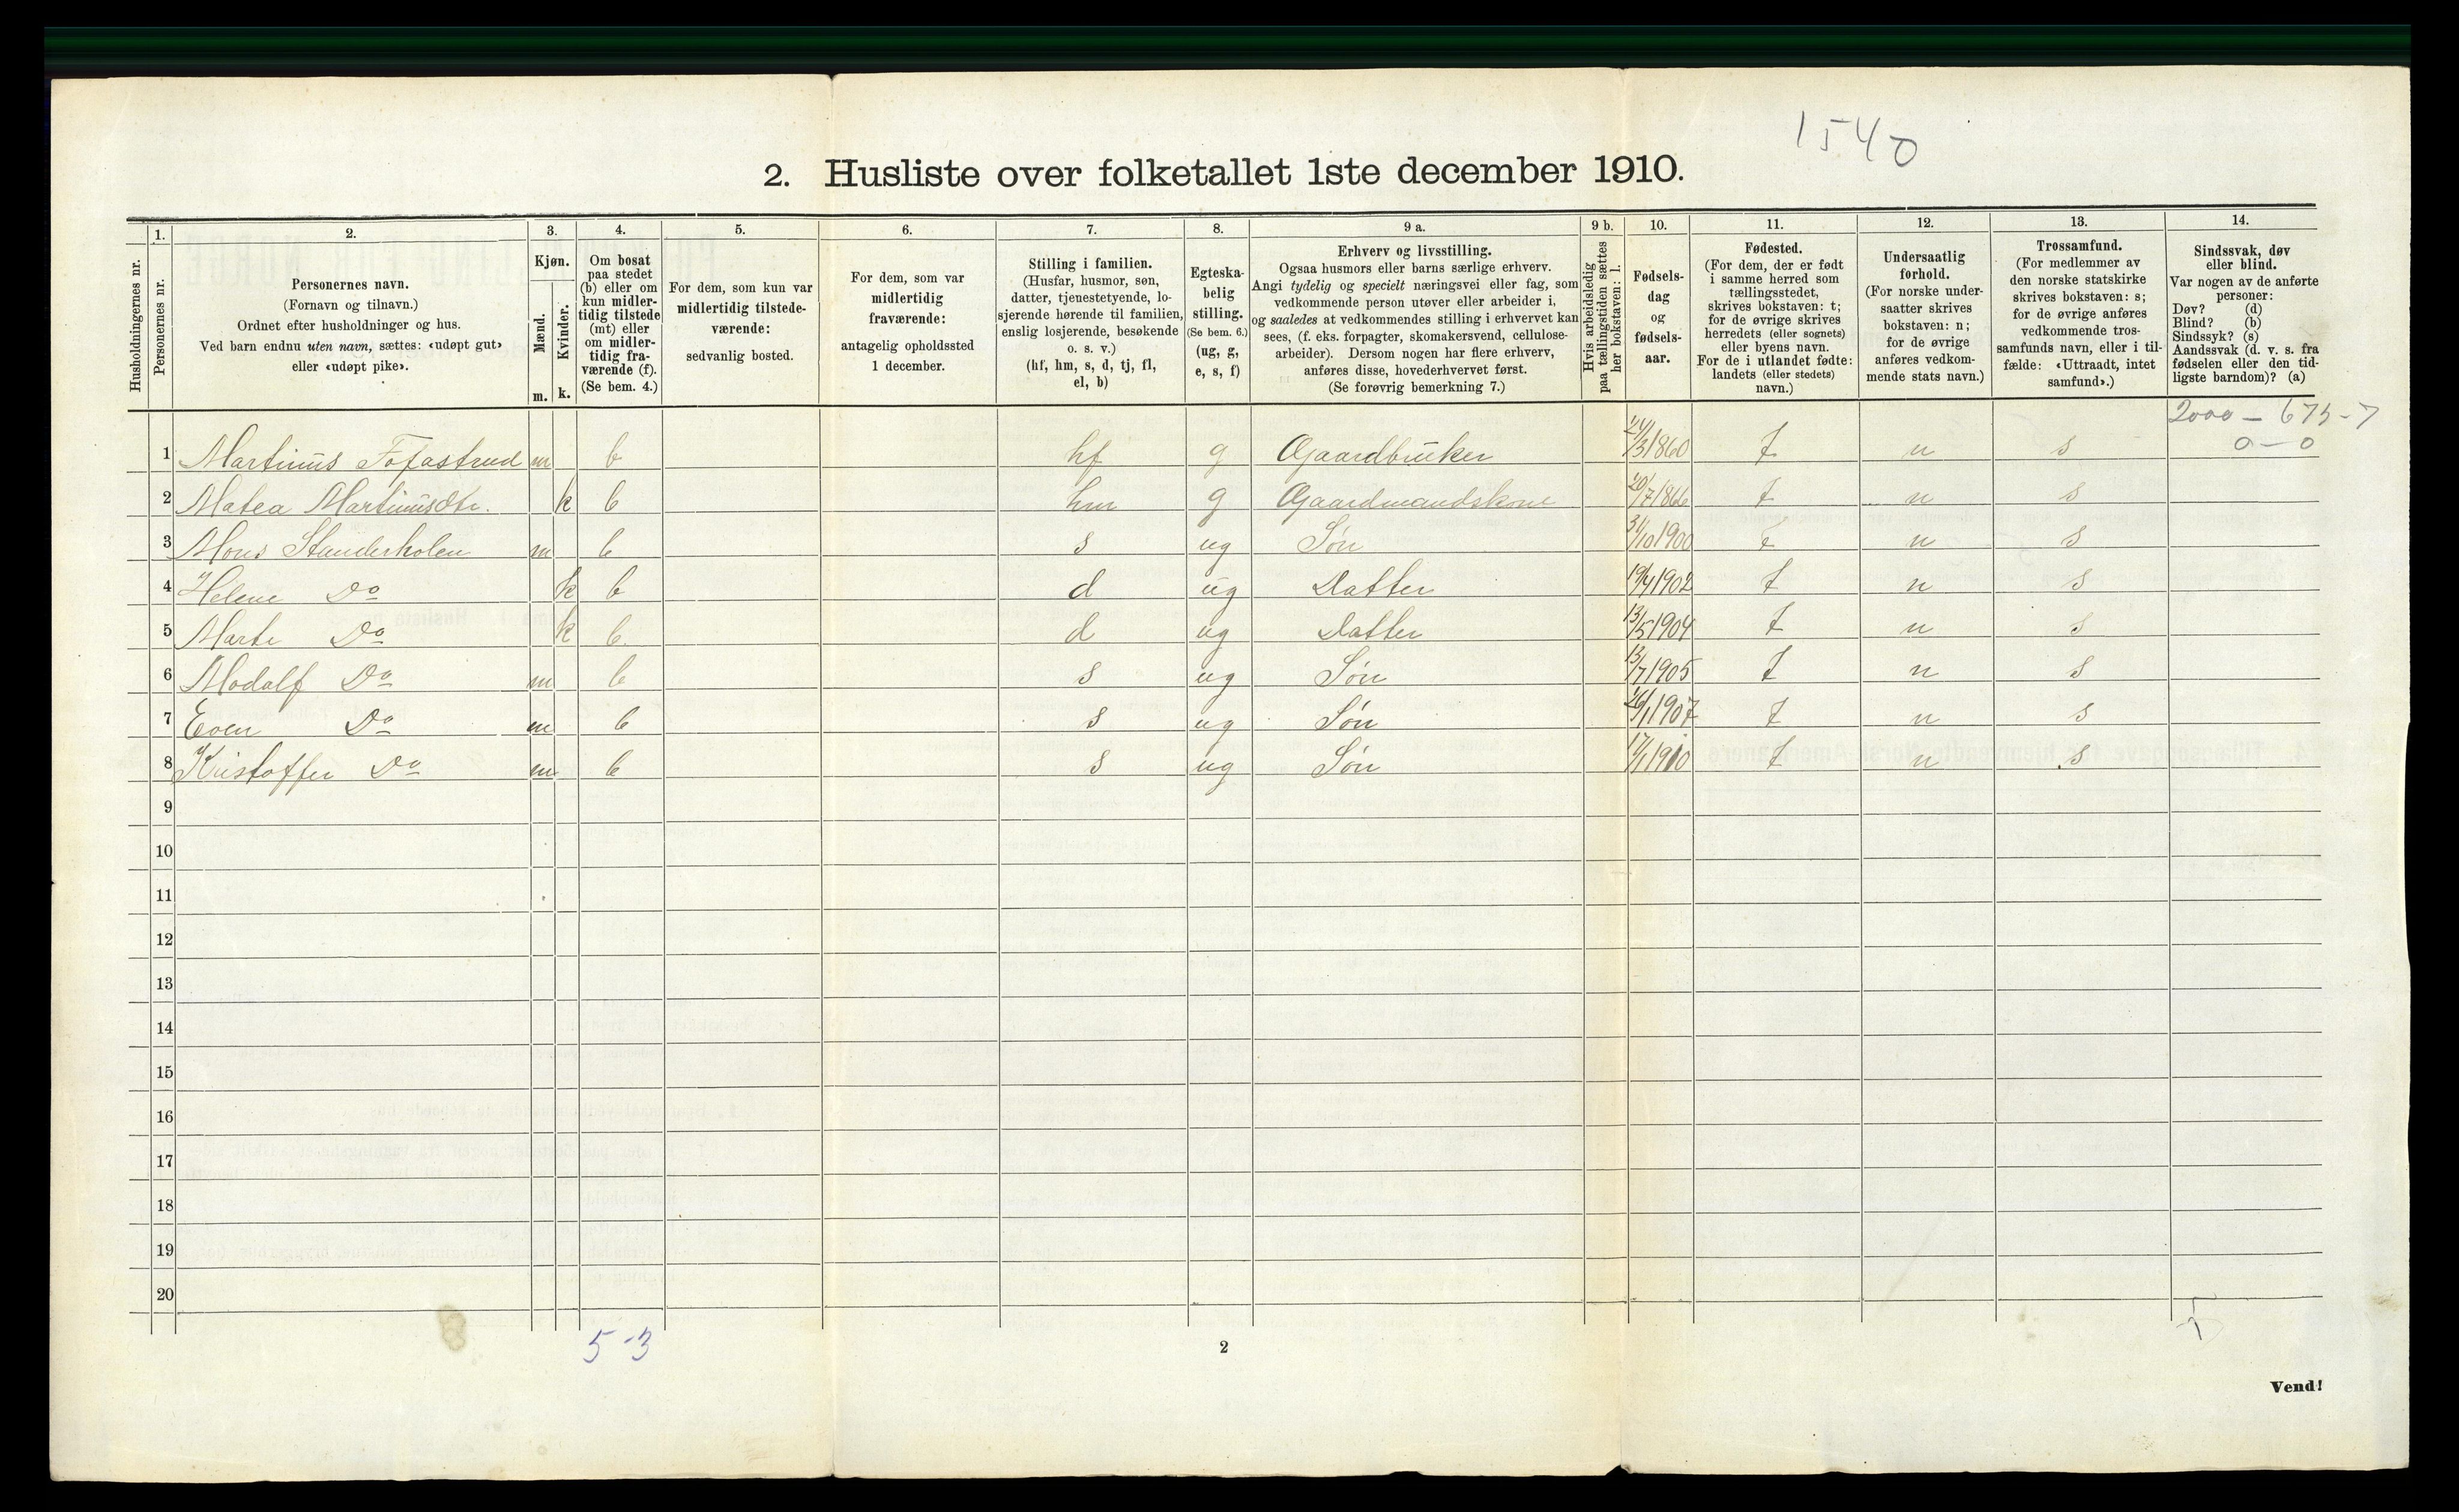 1540
2. Husliste over folketallet 1ste december 1910.
Husholdningernes nr.
1.
Personernes nr.
2.
Personernes navn.
(Fornavn og tilnavn.)
Ordnet efter husholdninger og hus.
Ved barn endnu uten navn, sættes: «udøpt gut»
eller «udøpt pike».
3.
Kjøn.
Mænd.
m.
Kvinder.
k.
4.
Om bosat
paa stedet
(b) eller om
kun midler-
tidig tilstede
(mt) eller
om midler-
tidig fra-
værende (f).
(Se bem. 4.)
5.
For dem, som kun var
midlertidig tilstede-
værende:
sedvanlig bosted.
6.
For dem, som var
midlertidig
fraværende:
antagelig opholdssted
1 december.
7.
Stilling i familien.
(Husfar, husmor, søn,
datter, tjenestetyende, lo-
sjerende hørende til familien,
enslig losjerende, besøkende
o. s. v.)
(hf, hm, s, d, tj, fl,
el, b)
8.
Egteska-
belig
stilling.
(Se bem. 6.)
(ug, g,
e, s, f)
9 a.
Erhverv og livsstilling.
Ogsaa husmors eller barns særlige erhverv.
Angi tydelig og specielt næringsvei eller fag, som
vedkommende person utøver eller arbeider i,
og saaledes at vedkommendes stilling i erhvervet kan
sees, (f. eks. forpagter, skomakersvend, cellulose-
arbeider). Dersom nogen har flere erhverv,
anføres disse, hovederhvervet først.
(Se forøvrig bemerkning 7.)
9 b.
Hvis arbeidsledig
paa tællingstiden sættes
her bokstaven: l.
10.
Fødsels-
dag
og
fødsels-
aar.
11.
Fødested.
(For dem, der er født
i samme herred som
tællingsstedet,
skrives bokstaven: t;
for de øvrige skrives
herredets (eller sognets)
eller byens navn.
For de i utlandet fødte:
landets (eller stedets)
navn.)
12.
Undersaatlig
forhold.
(For norske under-
saatter skrives
bokstaven: n;
for de øvrige
anføres vedkom-
mende stats navn.)
13.
Trossamfund.
(For medlemmer av
den norske statskirke
skrives bokstaven: s;
for de øvrige anføres
vedkommende tros-
samfunds navn, eller i til-
fælde: «Uttraadt, intet
samfund».)
14.
Sindssvak, døv
eller blind.
Var nogen av de anførte
personer:
Døv? (d)
Blind? (b)
Sindssyk? (s)
Aandssvak (d. v. s. fra
fødselen eller den tid-
ligste barndom)? (a)
2000 – 675 – 7
0 – 0
1 Martinus m b hf g Gaardbruker 24/3 1860 t n s
2 Matea Martinusdtr. k b hm g Gaardmandskone 20/7 1866 t n s
3 Mons Standerholen m b s ug Søn 31/10 1900 t n s
4 Helene Do k b d ug Datter 19/4 1902 t n s
5 Marte Do k b d ug Datter 13/5 1904 t n s
6 Modolf Do m b s ug Søn 13/7 1905 t n s
7 Even Do m b s ug Søn 1907 t n s
8 Kristoffer Do m b s ug Søn 17/1 1910 t n s
9
10
11
12
13
14
15
16
17
18
19
20
5-3
2
Vend!